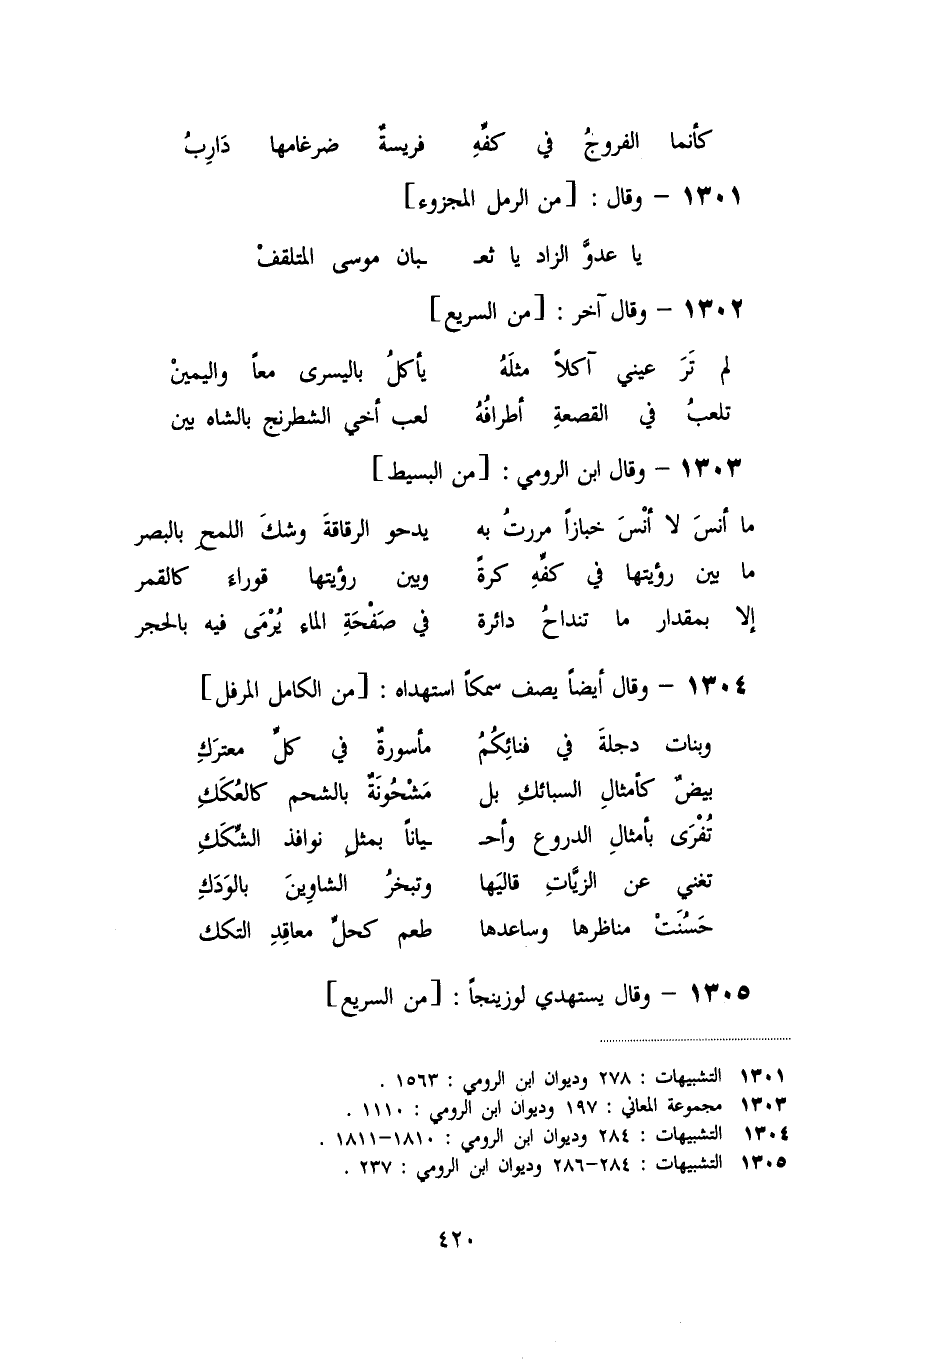 كأنما الفروجُ في كفِّهِ فريسةٌ ضرغامها دَارِبُ
١٣٠١ – وقال : [من الرمل المجزوء]
يا عدوَّ الزاد يا ثعـ ـبان موسى المتلقفْ
١٣٠٢ – وقال آخر : [من السريع]
لم تَرَ عيني آكلاً مثلَهُ يأكلُ باليسرى معاً واليمينْ
تلعبُ في القصعةِ أطرافُهُ لعب أخي الشطرنج بالشاه بين
١٣٠٣ – وقال ابن الرومي : [من البسيط]
ما أنسَ لا أنْسَ خبازاً مررتُ به يدحو الرقاقةَ وشكَ اللمحِ بالبصر
ما بين رؤيتها في كفِّهِ كرةً وبين رؤيتها قوراءَ كالقمر
إلا بمقدار ما تنداحُ دائرة في صَفْحَةِ الماءِ يُرْمَى فيه بالحجر
١٣٠٤ – وقال أيضاً يصف سمكاً استهداه : [من الكامل المرفل]
وبنات دجلةَ في فنائِكُمُ مأسورةٌ في كلِّ معتركِ
بيضٌ كأمثالِ السبائكِ بل مَشْحُونَةٌ بالشحم كالعُكَكِ
تُفْرَى بأمثالِ الدروع وأحـ ـياناً بمثلِ نوافذ الشِّكَكِ
تغني عن الزيَّاتِ قاليَها وتبخرُ الشاوِينَ بالوَدَكِ
حَسُنَتْ مناظرها وساعدها طعم كحلِّ معاقِدِ التكك
١٣٠٥ – وقال يستهدي لوزينجاً : [من السريع]
١٣٠١ التشبيهات : ٢٧٨ وديوان ابن الرومي : ١٥٦٣ .
١٣٠٣ مجموعة المعاني : ١٩٧ وديوان ابن الرومي : ١١١٠ .
١٣٠٤ التشبيهات : ٢٨٤ وديوان ابن الرومي : ١٨١٠–١٨١١ .
١٣٠٥ التشبيهات : ٢٨٤–٢٨٦ وديوان ابن الرومي : ٢٣٧ .
٤٢٠